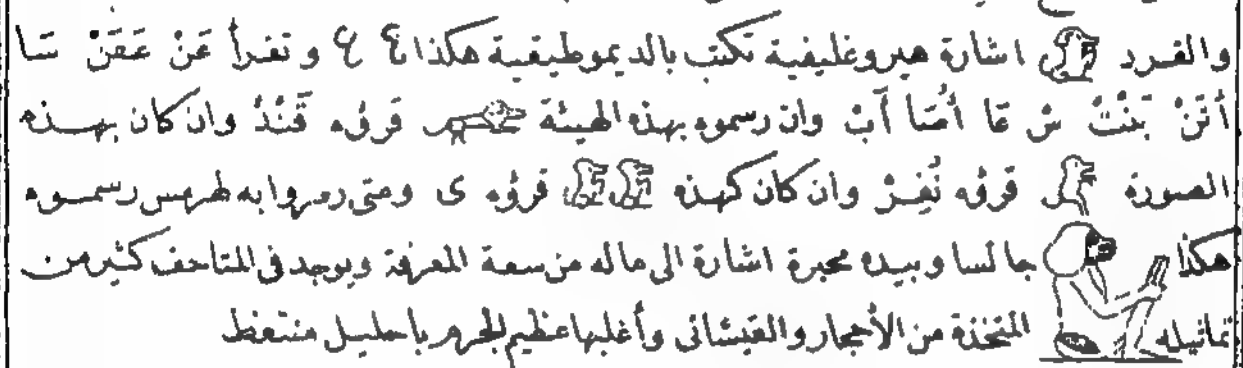 والقرد اشارة هيروغليفية تكتب بالديموطيقية هكذا وتقرأ عَنْ عَقَنْ سَا
أَتَنْ بَنْتُ سْ عَا أُصَا آبْ وان رسموه بهذه الهيئة قرؤه قَنْدُ وان كان بهذه
الصورة قرؤه نُفِرْ وان كان كهذه قرؤه ى ومتى رمزوا به لهرمس رسموه
هكذا جالسا وبيده محبرة اشارة الى ماله من سعة المعرفة ويوجد فى المتاحف كثير من
تماثيله المتخذة من الأحجار والقيشانى وأغلبها عظيم الجرم باحليل منتعظ